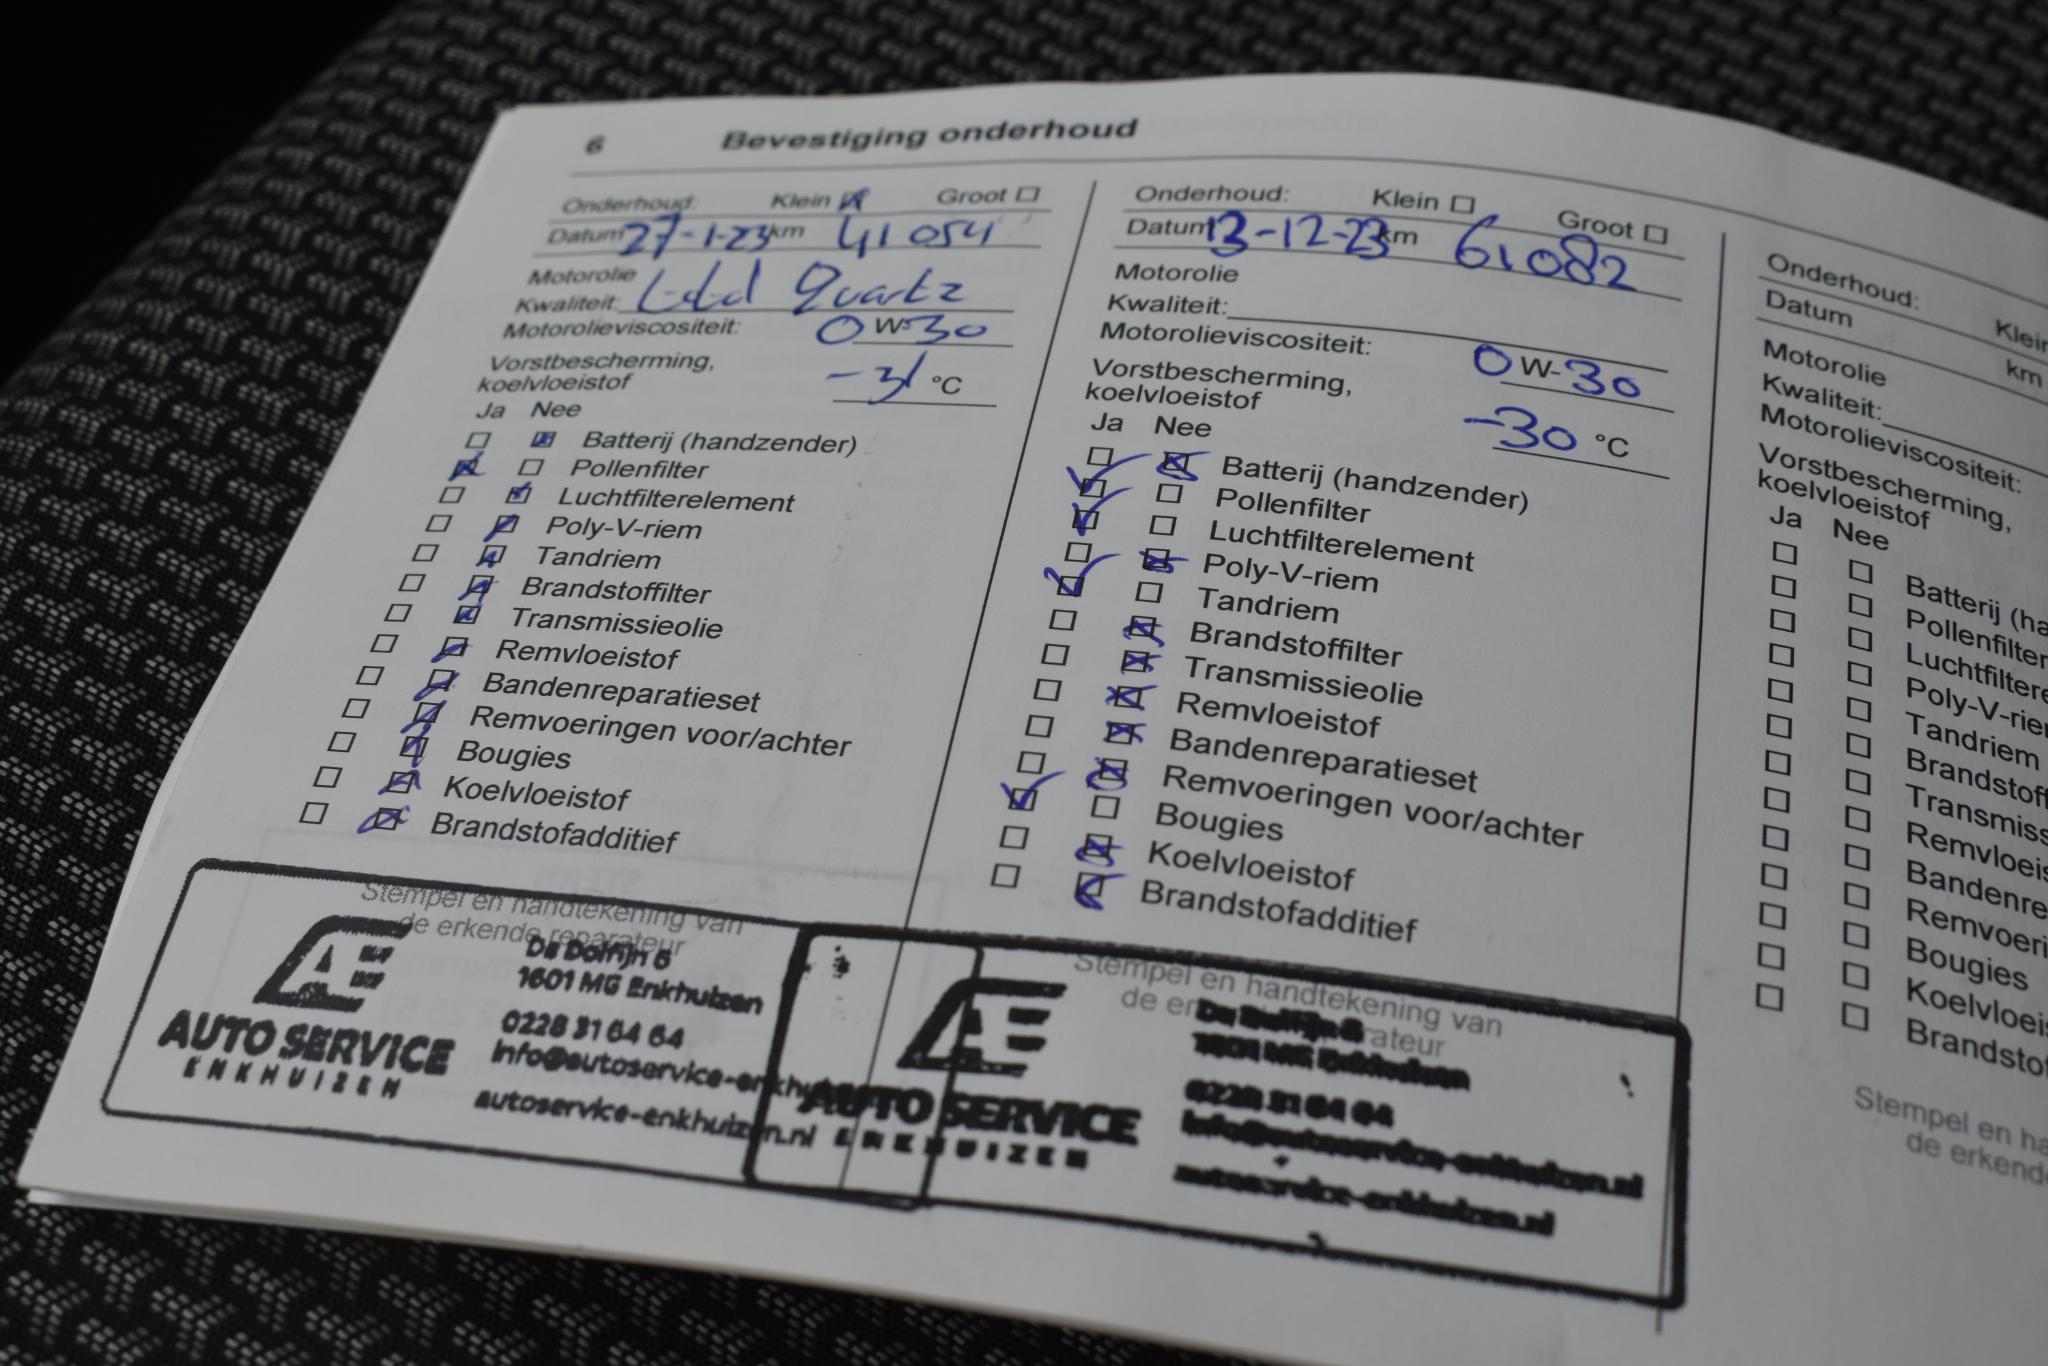 6 Bevestiging onderhoud
Onderhoud: Klein Groot
Datum 27-1-23 km 41054
Motorolie
Kwaliteit: Total Quartz
Motorolieviscositeit: 0 W-30
Vorstbescherming,
koelvloeistof -31 °C
Ja Nee
Batterij (handzender)
Pollenfilter
Luchtfilterelement
Poly-V-riem
Tandriem
Brandstoffilter
Transmissieolie
Remvloeistof
Bandenreparatieset
Remvoeringen voor/achter
Bougies
Koelvloeistof
Brandstofadditief
Stempel en handtekening van
de erkende reparateur
AE
AUTO SERVICE
ENKHUIZEN
De Dolfijn 6
1601 MG Enkhuizen
0228 31 64 64
autoservice-enkhuizen.nl
Onderhoud: Klein Groot
Datum 13-12-23 km 61082
Motorolie
Kwaliteit:
Motorolieviscositeit: 0 W-30
Vorstbescherming,
koelvloeistof -30 °C
Ja Nee
Batterij (handzender)
Pollenfilter
Luchtfilterelement
Poly-V-riem
Tandriem
Brandstoffilter
Transmissieolie
Remvloeistof
Bandenreparatieset
Remvoeringen voor/achter
Bougies
Koelvloeistof
Brandstofadditief
Stempel en handtekening van
AE
AUTO SERVICE
ENKHUIZEN
De Dolfijn 6
1601 MG Enkhuizen
0228 31 64 64
info@autoservice-enkhuizen.nl
autoservice-enkhuizen.nl
Onderhoud: Klein
Datum km
Motorolie
Kwaliteit:
Motorolieviscositeit:
Vorstbescherming,
koelvloeistof
Ja Nee
Batterij (ha
Pollenfilter
Luchtfiltere
Poly-V-rie
Tandriem
Brandstoff
Transmiss
Remvloeis
Bandenre
Remvoeri
Bougies
Koelvloeis
Brandstof
Stempel en ha
de erkend